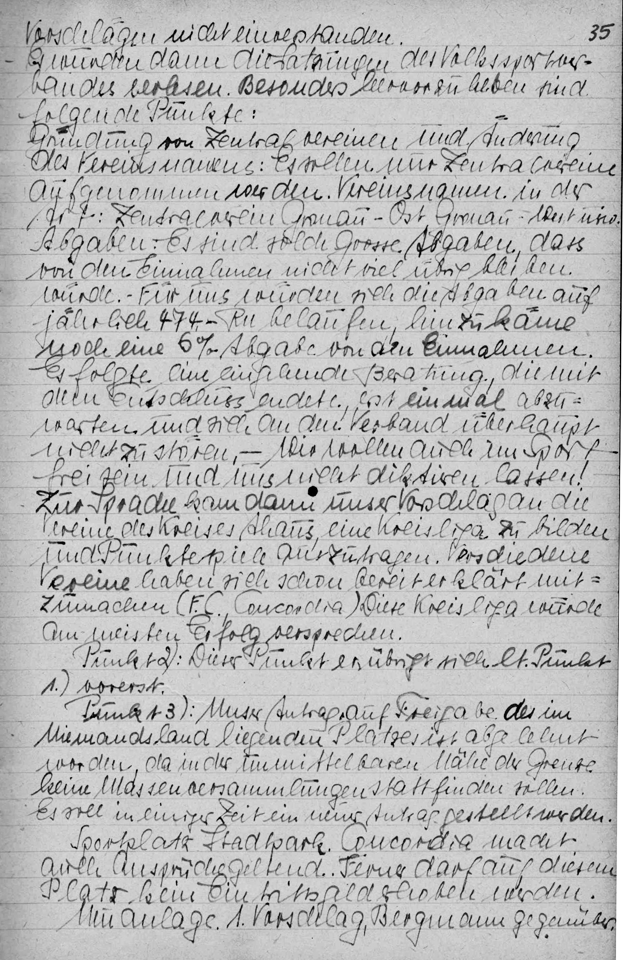 35
Vorschlägen nicht einverstanden.
Es wurden dann die Satzungen des Volkssportver-
bandes verlesen. Besonders hervorzuheben sind
folgende Punkte:
Gründung von Zentralvereinen und Änderung
des Vereinsnamens: Es sollen nur Zentralvereine
aufgenommen werden. Vereinsnamen in der
Art: Zentralverein Gronau-Ost Gronau-West usw.
Abgaben: Es sind solche Grosse Abgaben, dass
von den Einnahmen nicht viel übrig bleiben
würde. - Für uns würden sich die Abgaben auf
jährlich 474.- Rm belaufen, hinzu käme
noch eine 6% Abgabe von den Einnahmen.
Es folgte eine eingehende Beratung, die mit
dem Entschluss endete, erst einmal abzu-
warten und sich an den Verband überhaupt
nicht zu stören, - Wir wollen auch im Sport
frei sein und uns nicht diktieren lassen!
Zur Sprache kam dann unser Vorschlag an die
Vereine des Kreises Ahaus, eine Kreisliga zu bilden
und Punktespiele auszutragen. Verschiedene
Vereine haben sich schon bereit erklärt mit=
zumachen (F.C. Concordia) Diese Kreisliga würde
am meisten Erfolg versprechen.
Punkt 2): Dieser Punkt erübrigt sich lt. Punkt
1.) vorerst.
Punkt 3): Unser Antrag auf Freigabe des im
Niemandsland liegenden Platzes ist abgelehnt
worden, da in der unmittelbaren Nähe der Grenze
keine Massenversammlungen stattfinden sollen.
Es soll in einiger Zeit ein neuer Antrag gestellt werden.
Sportplatz Stadtpark. Concordia macht
auch Ansprüche geltend. Ferner darf auf diesem
Platz kein Eintrittsgeld erhoben werden.
Neuanlage. 1. Vorschlag, Bergmann gegenüber.